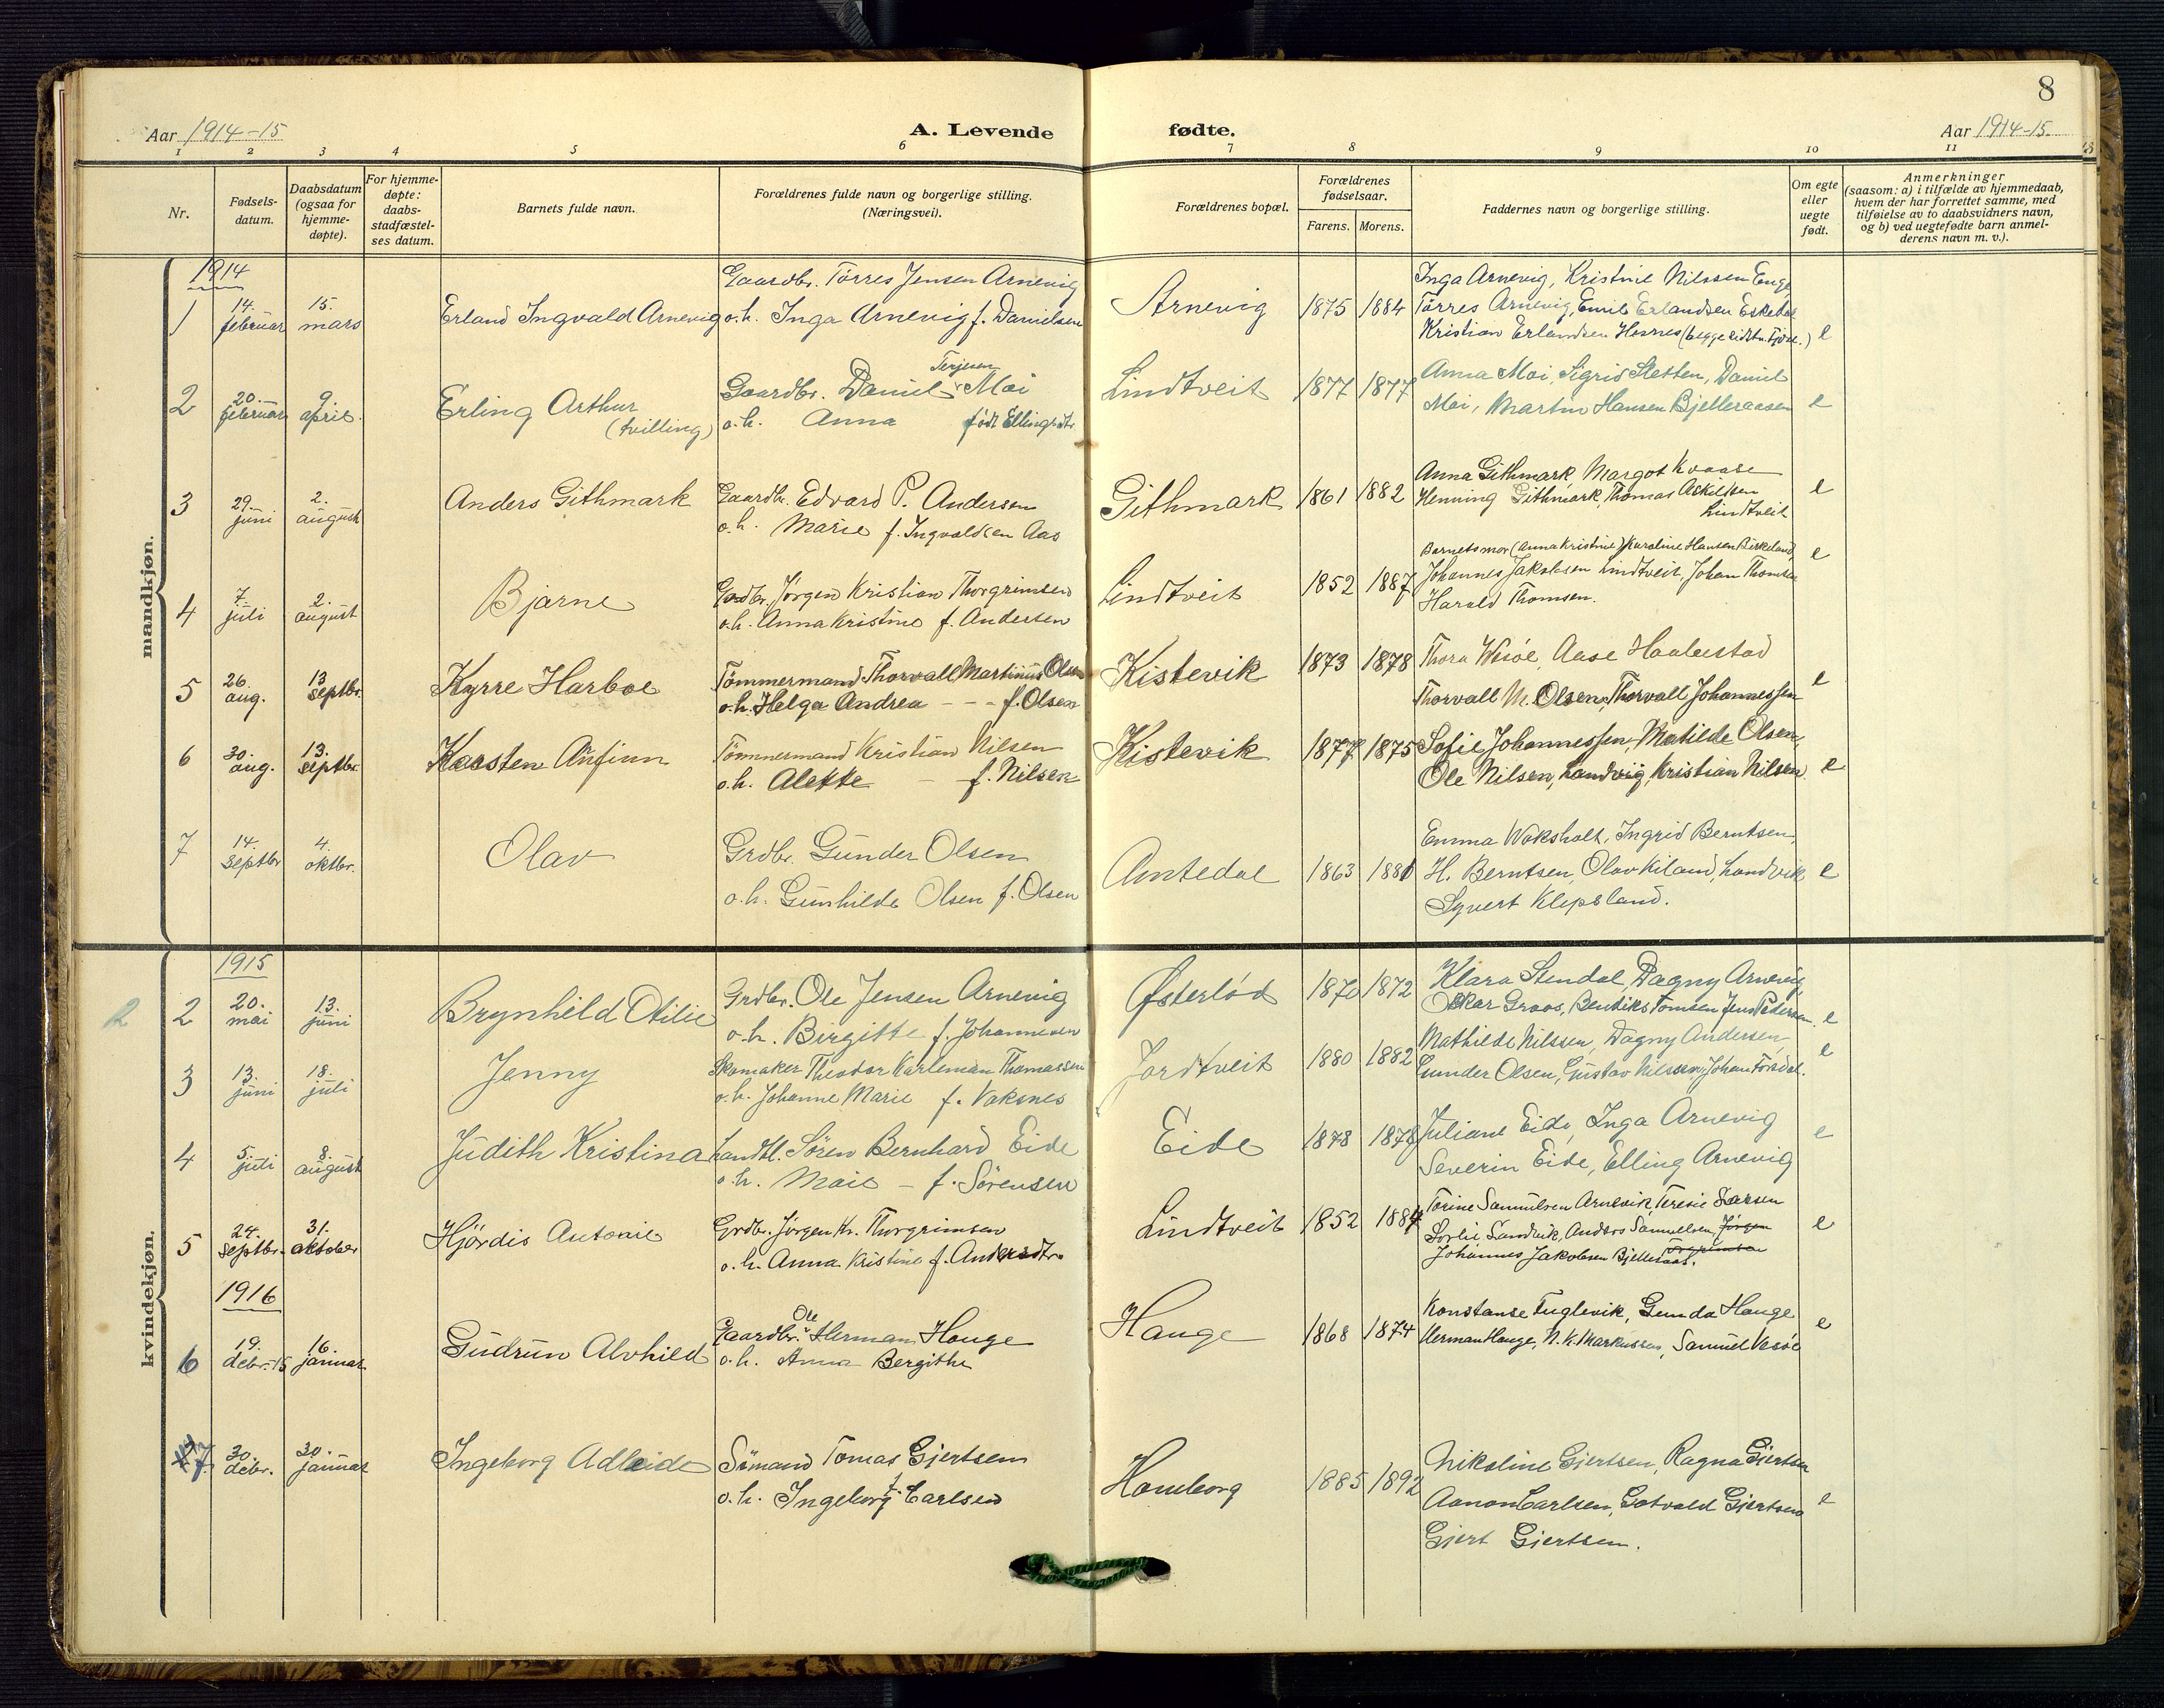 8
Aar 1914-15 A. Levende fødte. Aar 1914-15.
1 2 3 4 5 6 7 8 9 10 11
Nr.
Fødsels-
datum.
Daabsdatum
(ogsaa for
hjemme-
døpte).
For hjemme-
døpte:
daabs-
stadfæstel-
ses datum.
Barnets fulde navn.
Forældrenes fulde navn og borgerlige stilling.
(Næringsvei).
Forældrenes bopæl.
Forældrenes
fødselsaar.
Farens. Morens.
Faddernes navn og borgerlige stilling.
Om egte
eller
uegte
født.
Anmerkninger
(saasom: a) i tilfælde av hjemmedaab,
hvem der har forrettet samme, med
tilføielse av to daabsvidners navn,
og b) ved uegtefødte barn anmel-
derens navn m. v.).
mandkjøn.
1914
1
14.
februar
15.
mars
Erland Ingvald Arnevig
Gaardbr. Tørres Jensen Arnevig
o.h. Inga Arnevig f. Danielsen
Arnevig
1875 1884
Inga Arnevig, Kristine Nilssen Enge
Tørres Arnevig, Emil Erlandsen Eskedal
Kristian Erlandsen Hesnes
e
2
20.
februar
9.
april.
Erling Arthur
(tvilling)
Terjesen
Gaardbr. Daniel Moi
o.h. Anna født Ellingsdtr.
Lindtveit
1877 1877
Anna Moi, Sigrid Sletten, Daniel
Moi, Martin Hansen Bjelleraasen
e
3
29.
juni
2.
august
Anders Githmark
Gaardbr. Edvard P. Andersen
o.h. Marie f. Ingvaldsen Aas
Githmark
1861 1882
Anna Githmark, Margot Kvaase
Henning Githmark, Thomas Askildsen
Lindtveit
e
4
7.
juli
2.
august
Bjarne
Grdbr. Jørgen Kristian Thorgrimsen
o.h. Anna Kristine f. Andersen
Lindtveit
1852 1887
Barnets mor (Anna Kristine) Karoline Hansen Birkeland,
Johannes Jakobsen Lindtveit, Johan Thomsen
Harald Thomsen.
e
5
26.
aug.
13
septbr.
Kyrre Harboe
Tømmermand Thorvall Martinius Olsen
o.h. Helga Andrea - - - f. Olsen
Kistevik
1873 1878
Thora Wesøe, Aase Haabestad
Thorvall M. Olsen, Thorvall Johannessen
e
6
30.
aug.
13.
septbr.
Karsten Arnfinn
Tømmermand Kristian Nilsen
o.h. Alette - f. Nilsen
Kistevik
1877 1875
Sofie Johannessen, Matilde Olsen,
Ole Nilsen, Landvig, Kristian Nilsen
e
7
14.
septbr
4.
oktbr.
Olav
Grdbr. Gunder Olsen
o.h. Gunhilde Olsen f. Olsen
Amtedal
1863 1881
Emma Voksholt, Ingrid Berntsen,
H. Berntsen, Olav Kiland, Landvik
Syvert Klepsland.
e
kvindekjøn.
1915
2 2
20.
mai
13.
juni
Brynhild Otilie
Grdbr. Ole Jensen Arnevig
o.h. Birgitte f. Johannesen
Østerlød
1870 1872
Klara Stendal, Dagny Arnevig
Oskar Graos, Bendiks Tomsen, Jens Pedersen
e
3
13.
juni
18.
juli
Jenny
Skomaker Theodor Karleman Thomassen
o.h. Johanne Marie f. Vaksnes
Jordtveit
1880 1882
Mathilde Nilssen, Dagny Andersen,
Gunder Olsen, Gustav Nilssen, Johan Fosdal.
e
4
5.
juli
8.
august
Judith Kristina
Landhl. Søren Bernhard Eide
o.h. Maie - f. Sørensen
Eide
1878 1878
Juliane Eide, Inga Arnevig
Severin Eide, Elling Arnevig
e
5
24.
septbr.
31.
oktober
Hjørdis Antonie
Grdbr. Jørgen Kr. Thorgrimsen
o.h. Anna Kristine f. Andersdtr.
Lindtveit
1852 1887
Torine Samuelsen Arnevik, Teresie Larsen
Sørlie Landvik, Anders Samuelsen, Jørgen
Johannes Jakobsen Bjelleraas. Torgrimsen
e
1916
6
19.
debr.-15
16.
januar
Gudrun Alvhild
Ole
Gaardbr. Herman Hauge
o.h. Anna Bergithe
Hauge
1868 1874
Konstanse Fuglevik, Gunda Hauge
Herman Hauge, N. K. Markussen, Samuel Vesøe
e
7
30.
debr.
30.
januar
Ingeborg Adleide
Sømand Tomas Gjertsen
o.h. Ingeborg f. Carlsen
Homborg
1885 1892
Nikoline Gjertsen, Ragna Gjertsen
Aanon Carlsen, Gotvald Gjertsen
Gjert Gjertsen.
e